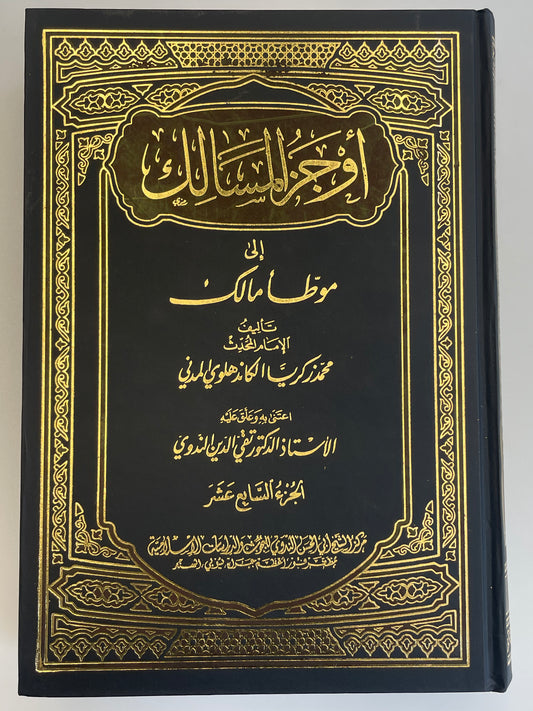 أوجز المسالك
إلى
موطأ مالك
تأليف
الإمام المحدث
محمد زكريا الكاندهلوي المدني
اعتنى به وعلق عليه
الأستاذ الدكتور تقي الدين الندوي
الجزء السابع عشر
مركز الشيخ أبي الحسن الندوي للبحوث والدراسات الإسلامية
مظفر فور، أعظم جراه، يوبي، الهند